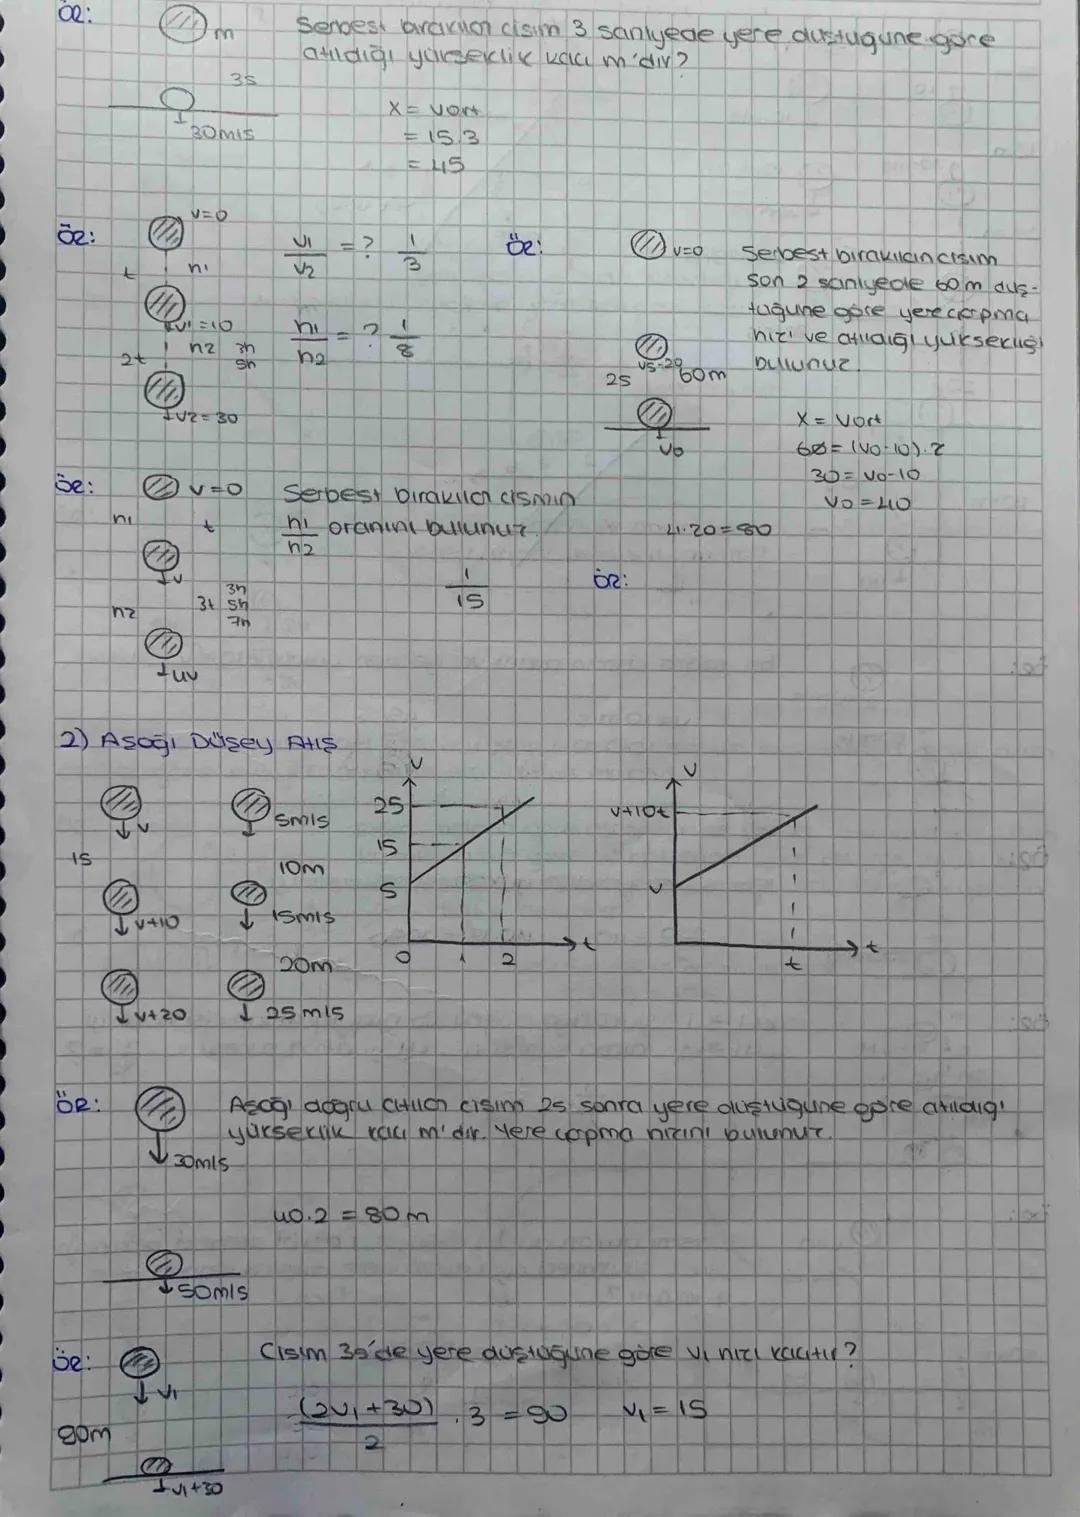 ÖR:
m
Serbest bırakılan cisim 3 saniyede yere düştüğüne göre
atıldığı yükseklik kaç m'dir?
3s
30m/s
X = Vort
= 15.3
= 45
ÖR:
V=0
t
h1
V1=10
h2 3h
5h
2t
V2=30
V1/V2 = ? 1/3
h1/h2 = ? 1/8
ÖR:
V=0
Serbest bırakılan cisim
son 2 saniyede 60m düş-
tüğüne göre yere çarpma
hızı ve atıldığı yüksekliği
bulunuz.
2s
60m
V0
X = Vort
60 = (V0-10).2
30 = V0-10
V0 = 40
4.20 = 80
ÖR:
V=0
Serbest bırakılan cismin
h1/h2 oranını bulunuz.
h1
t
V
h2
3t
3h
5h
7h
4V
1/15
ÖR:
2) Aşağı Düşey Atış
V
1s
V+10
V+20
5m/s
10m
15m/s
20m
25m/s
V
25
15
5
0 1 2
t
V
V+10t
V
t
t
ÖR:
Aşağı doğru atılan cisim 2s sonra yere düştüğüne göre atıldığı
yükseklik kaç m'dir. Yere çarpma hızını bulunuz.
30m/s
40.2 = 80m
50m/s
ÖR:
Cisim 3s'de yere düştüğüne göre V1 hızı kaçtır?
V1
90m
(2V1+30)/2 . 3 = 90 V1 = 15
V1+30